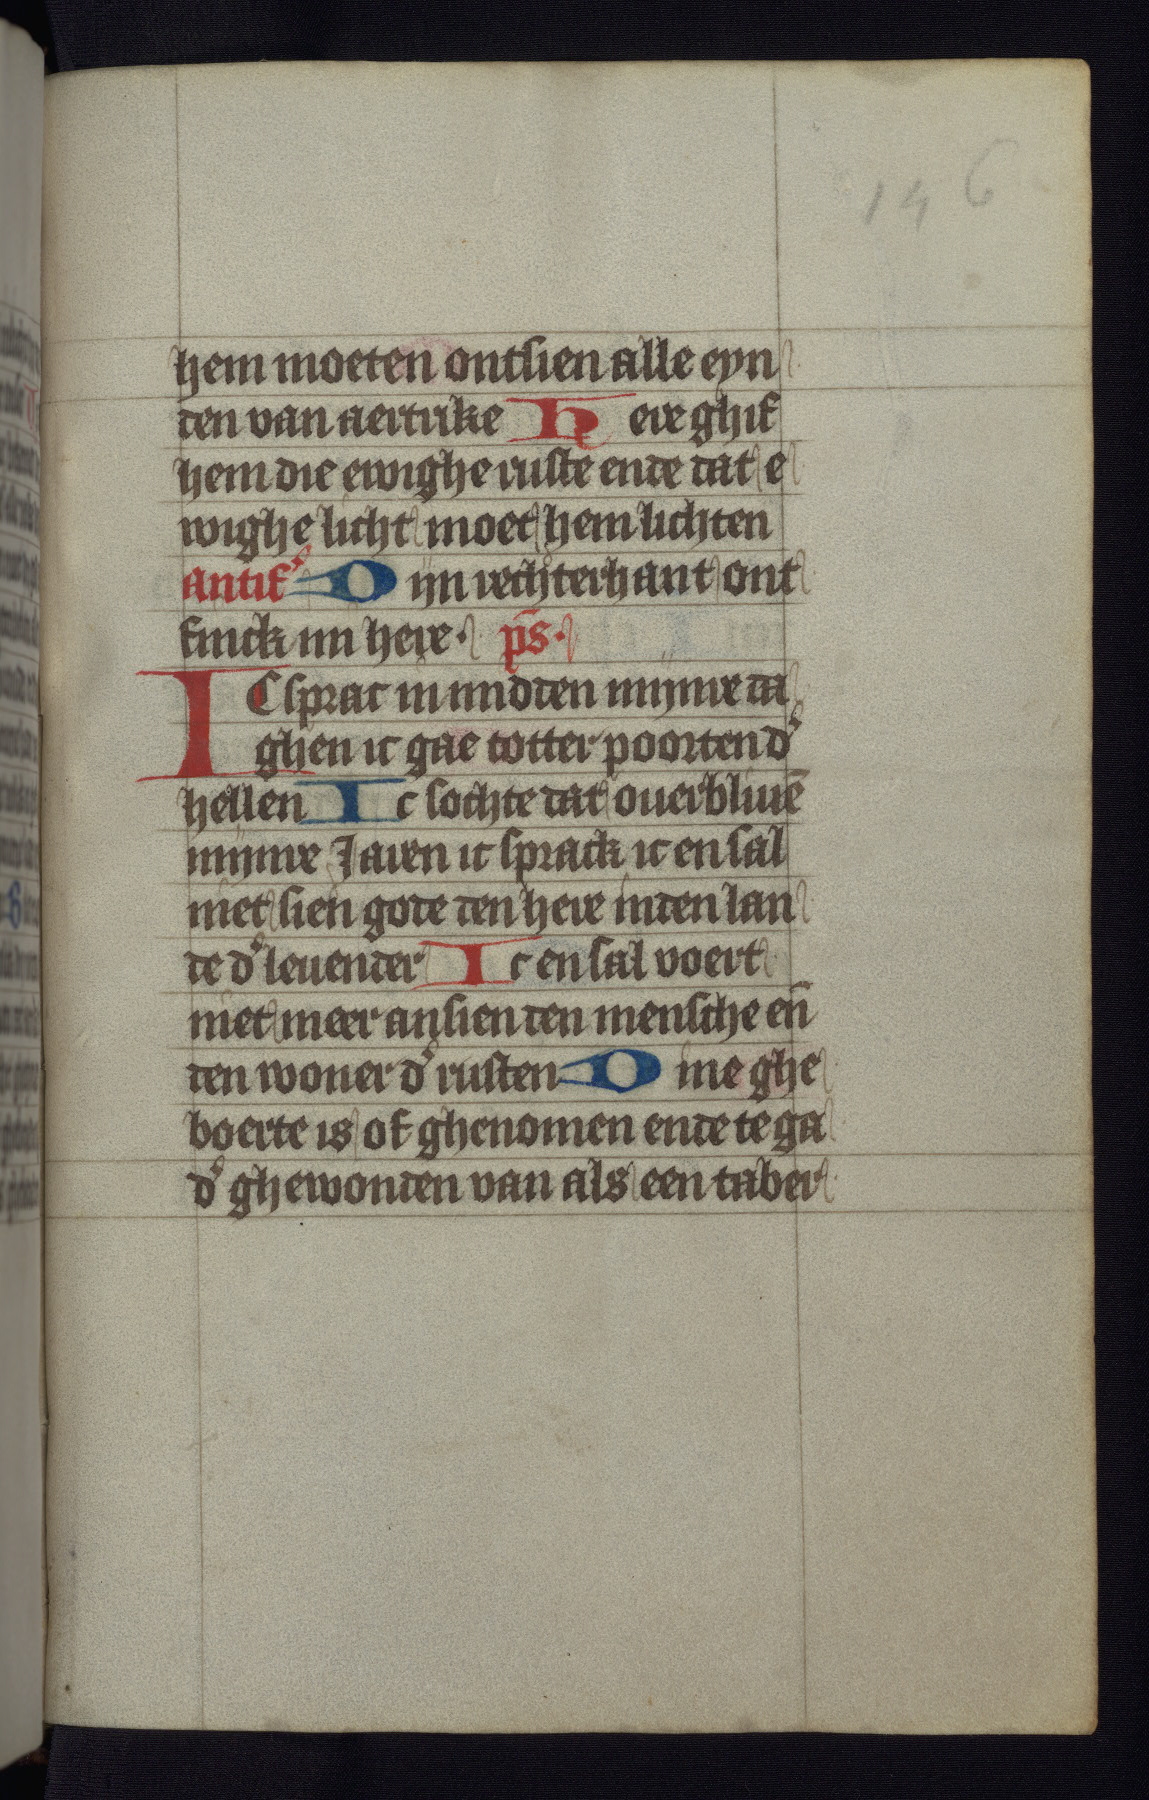 146
hem moeten ontsien alle eyn
den van aertrike Here ghif
hem die ewighe ruste ende dat e
wighe licht moet hem lichten
antif᷒ Dijn rechterhant ont
finck mi here · p̄s ·
IC sprac in middten mijnre da
ghen ic gae totter poorten d᷒
hellen Ic sochte dat ouerbliuē
mijnre Jaren ic sprack ic en sal
niet sien gode den here inden lan
de d᷒ leuender Ic en sal voert
niet meer ansien den mensche en̄
den woner d᷒ rusten Mine ghe
boerte is of ghenomen ende te ga
d᷒ ghewonden van als een taber